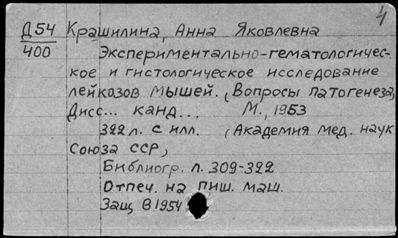 4
Д54 Крашилина, Анна Яковлевна
400 Экспериментально-гематологичес-
кое и гистологическое исследование
лейкозов мышей. (Вопросы патогенеза)
Дисс... канд... М., 1953
322 л. с илл. (Академия мед. наук
Союза ССР)
Библиогр. л. 309-322
Отпеч. на пиш. маш.
Защ В 1954